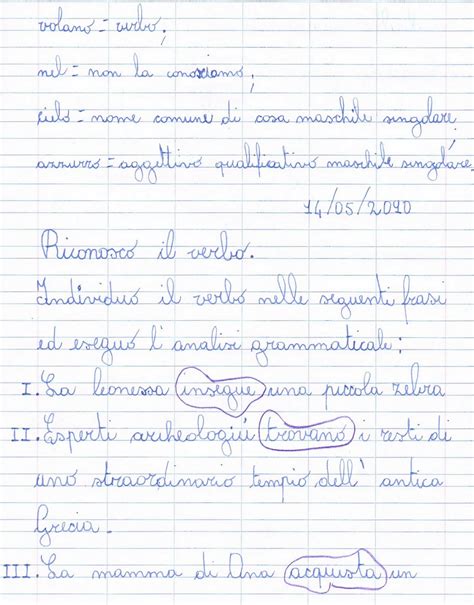 volano = verbo;
nel = non la conosciamo;
cielo = nome comune di cosa maschile singolare
azzurro = aggettivo qualificativo maschile singolare.
14/05/2010
Riconosco il verbo.
Individuo il verbo nelle seguenti frasi
ed eseguo l'analisi grammaticale:
I. La leonessa insegue una piccola zebra
II. Esperti archeologi trovano i resti di
uno straordinario tempio dell'antica
Grecia.
III. La mamma di Ona acquista un